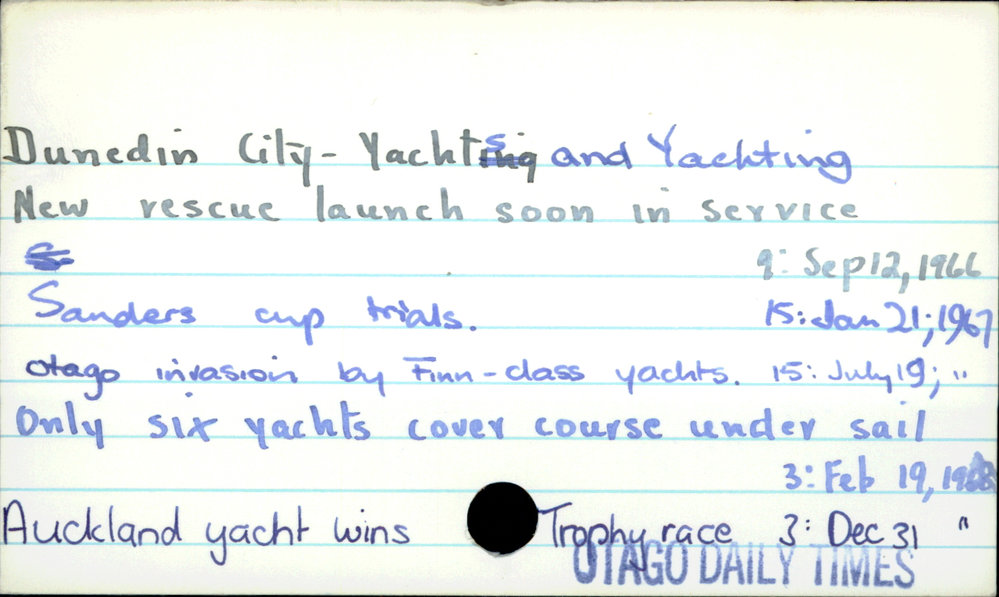 Dunedin City - Yachts and Yachting
New rescue launch soon in service
9: Sep 12, 1966
Sanders cup trials. 15: Jan 21; 1967
Otago invasion by Finn-class yachts. 15: July 19; "
Only six yachts cover course under sail
3: Feb 19, 1968
Auckland yacht wins Trophy race 3: Dec 31 "
OTAGO DAILY TIMES